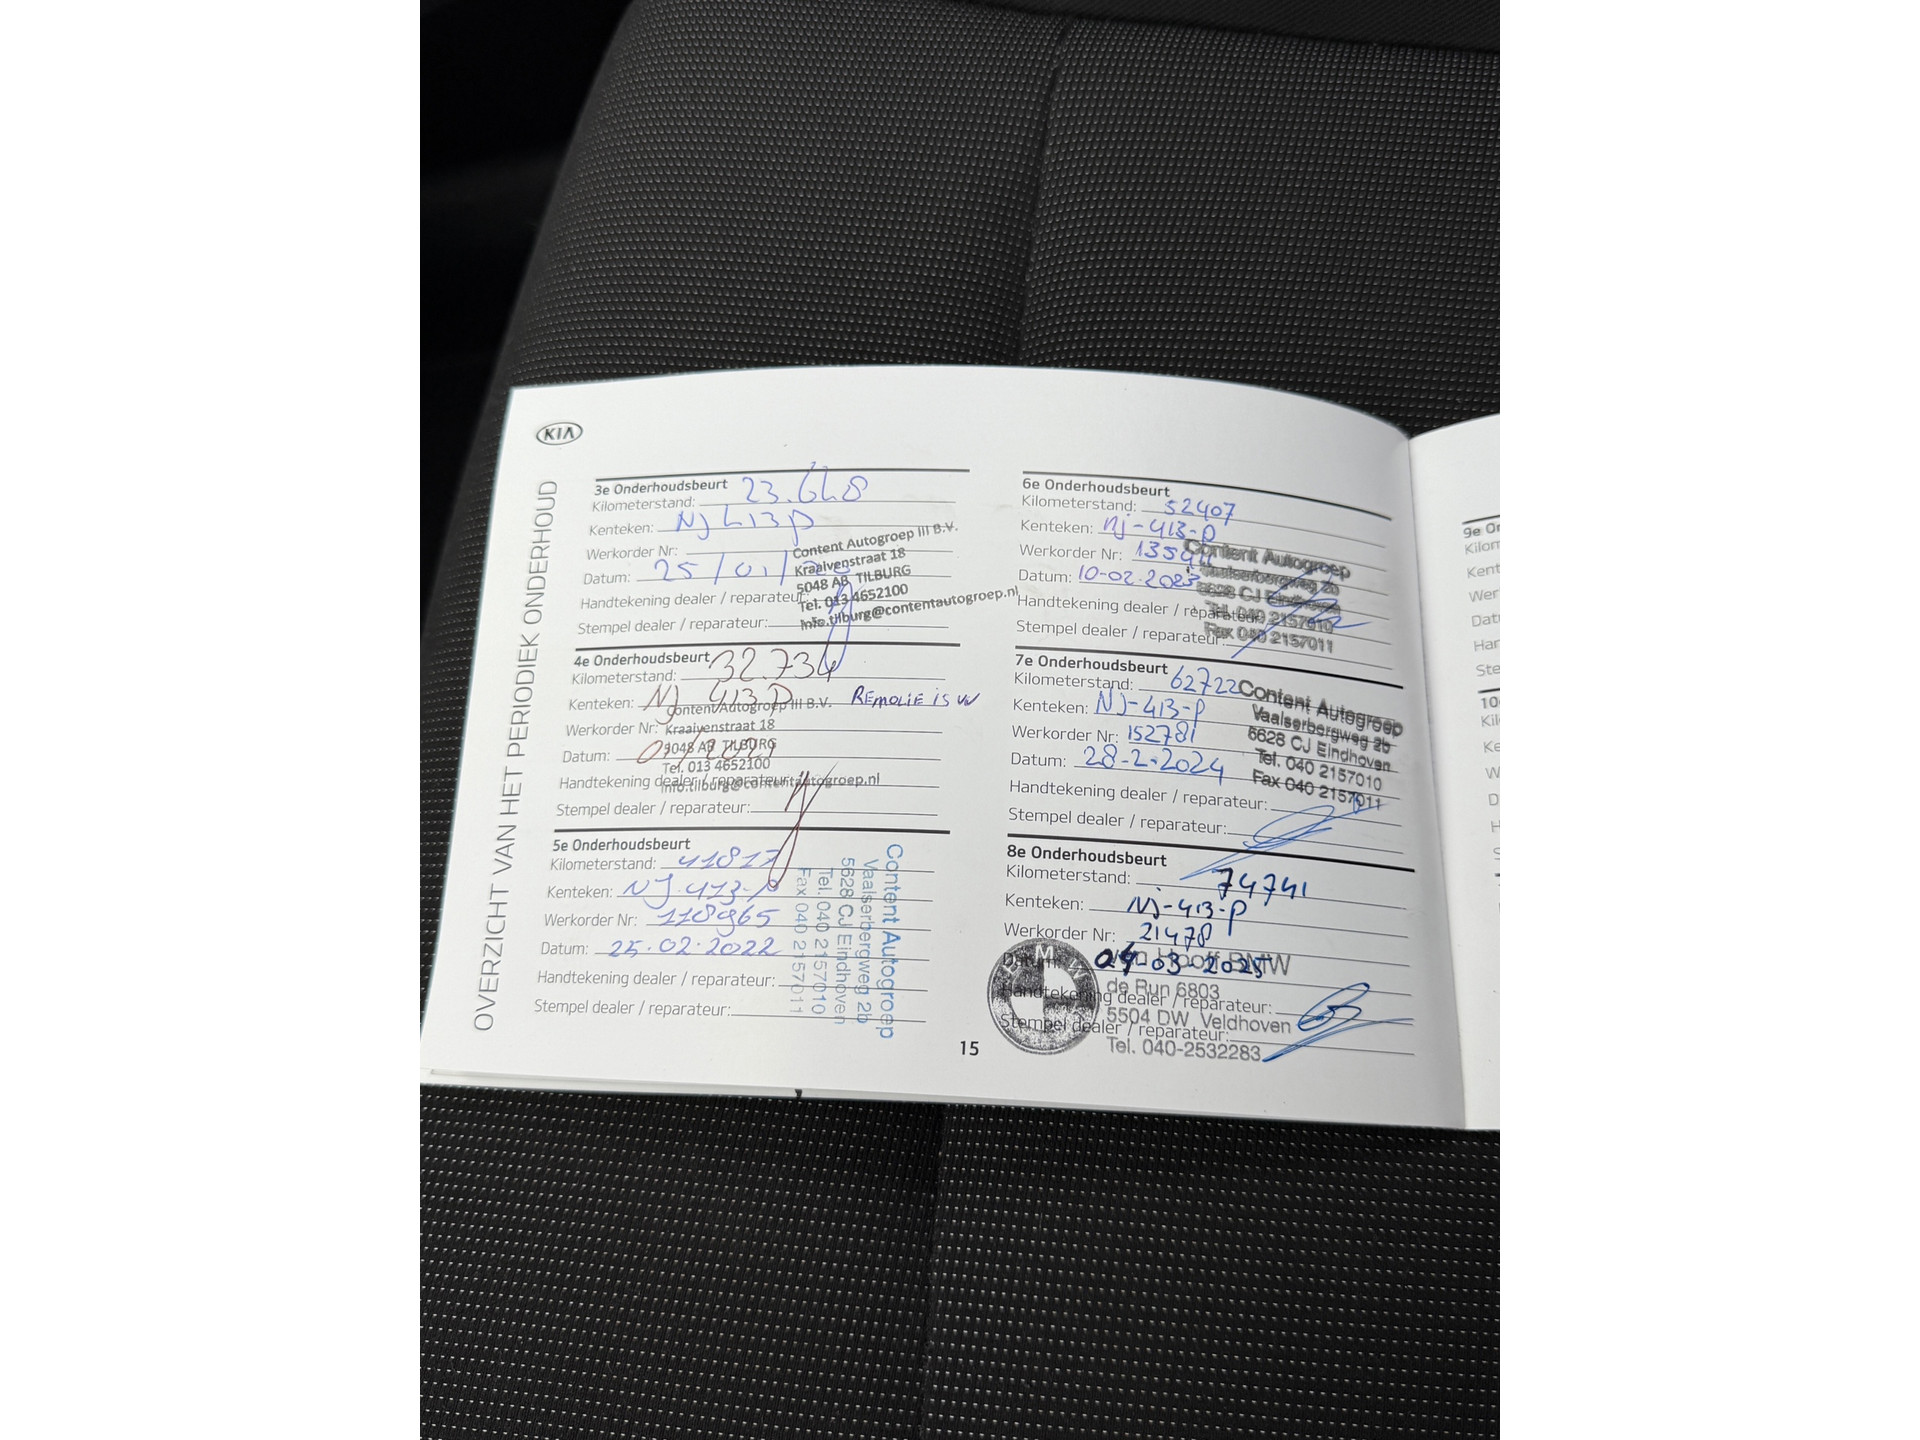 KIA
OVERZICHT VAN HET PERIODIEK ONDERHOUD
3e Onderhoudsbeurt
Kilometerstand: 23.648
Kenteken: NJ 413 P
Werkorder Nr:
Datum: 25/01/
Handtekening dealer / reparateur:
Stempel dealer / reparateur:
Content Autogroep III B.V.
Kraaivenstraat 18
5048 AB TILBURG
Tel. 013 4652100
info.tilburg@contentautogroep.nl
4e Onderhoudsbeurt
Kilometerstand: 32.734
Kenteken: NJ 413 P
REMOLIE IS VV
Werkorder Nr:
Datum:
Handtekening dealer / reparateur:
Stempel dealer / reparateur:
Content Autogroep III B.V.
Kraaivenstraat 18
5048 AB TILBURG
Tel. 013 4652100
info.tilburg@contentautogroep.nl
5e Onderhoudsbeurt
Kilometerstand: 41817
Kenteken: NJ-413-P
Werkorder Nr: 118965
Datum: 25.02.2022
Handtekening dealer / reparateur:
Stempel dealer / reparateur:
Content Autogroep
Vaalserbergweg 2b
5628 CJ Eindhoven
Tel. 040 2157010
Fax 040 2157011
6e Onderhoudsbeurt
Kilometerstand: 52407
Kenteken: NJ-413-P
Werkorder Nr:
Datum: 10-02-2023
Handtekening dealer / reparateur:
Stempel dealer / reparateur:
Content Autogroep
Vaalserbergweg 2b
5628 CJ Eindhoven
Tel. 040 2157010
Fax 040 2157011
7e Onderhoudsbeurt
Kilometerstand: 62722
Kenteken: NJ-413-P
Werkorder Nr: 152781
Datum: 28-2-2024
Handtekening dealer / reparateur:
Stempel dealer / reparateur:
Content Autogroep
Vaalserbergweg 2b
5628 CJ Eindhoven
Tel. 040 2157010
Fax 040 2157011
8e Onderhoudsbeurt
Kilometerstand: 74741
Kenteken: NJ-413-P
Werkorder Nr: 21478
Datum: 04-03-2025
Handtekening dealer / reparateur:
Stempel dealer / reparateur:
BMW
van Hooff BMW
de Run 6803
5504 DW Veldhoven
Tel. 040-2532283
15